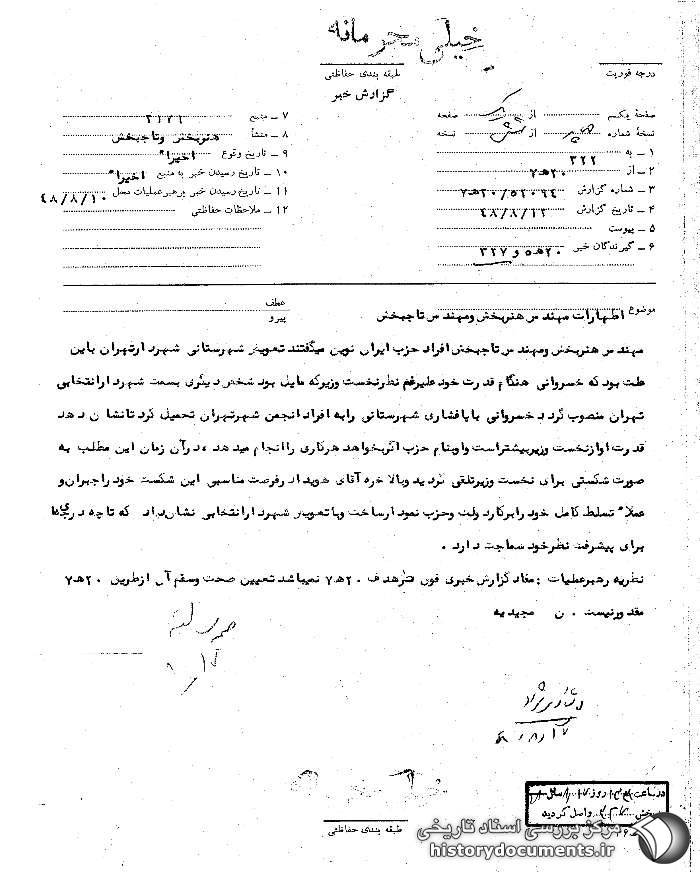 خیلی محرمانه
طبقه بندی حفاظتی
درجه فوریت
گزارش خبر
صفحه یکم از یک صفحه
نسخه شماره از شش نسخه
۱ - به ۳۲۲
۲ - از ۲۰ه۷
۳ - شماره گزارش ۲۰/۵۲۰۹۴ه۷
۴ - تاریخ گزارش ۴۸/۸/۱۲
۵ - پیوست
۶ - گیرندگان خبر ۲۰ه۵ و ۳۲۷
۷ - منبع ۲۱۲۱
۸ - منشأ هنربخش وتاجبخش
۹ - تاریخ وقوع اخیرا"
۱۰ - تاریخ رسیدن خبر به منبع اخیرا"
۱۱ - تاریخ رسیدن خبر برهبرعملیات محل ۴۸/۸/۱۰
۱۲ - ملاحظات حفاظتی
موضوع اظهارات مهندس هنربخش ومهندس تاجبخش
عطف
پیرو
مهندس هنربخش ومهندس تاجبخش افراد حزب ایران نوین میگفتند تعویض شهرستانی شهردارتهران باین
علت بود که خسروانی هنگام قدرت خود علیرغم نظرنخست وزیرکه مایل بود شخص دیگری بسمت شهردارانتخابی
تهران منصوب گردد خسروانی باپافشاری شهرستانی رابه افراد انجمن شهرتهران تحمیل کرد تانشان دهد
قدرت اوازنخست وزیربیشتراست واوبنام حزب اگربخواهد هرکاری راانجام میدهد ،درآن زمان این مطلب به
صورت شکستی برای نخست وزیرتلقی گردید وبالاخره آقای هویدا درفرصت مناسبی این شکست خود راجبران و
عملا" تسلط کامل خود رابرکاردولت وحزب نمودارساخت وباتعویض شهردارانتخابی نشان داد که تاچه درجه
برای پیشرفت نظرخود سماجت دارد .
نظریه رهبرعملیات : مفاد گزارش خبری فوق هدف ۲۰ه۷ نمیباشد تعیین صحت وسقم آن ازطریق ۲۰ه۷
مقدورنیست . ن مجیدیه
۸/۱۷
۴۸/۸/۱۷
در ساعت روز سال
بخش واصل گردید
طبقه بندی حفاظتی
مرکز بررسی اسناد تاریخی
historydocuments.ir